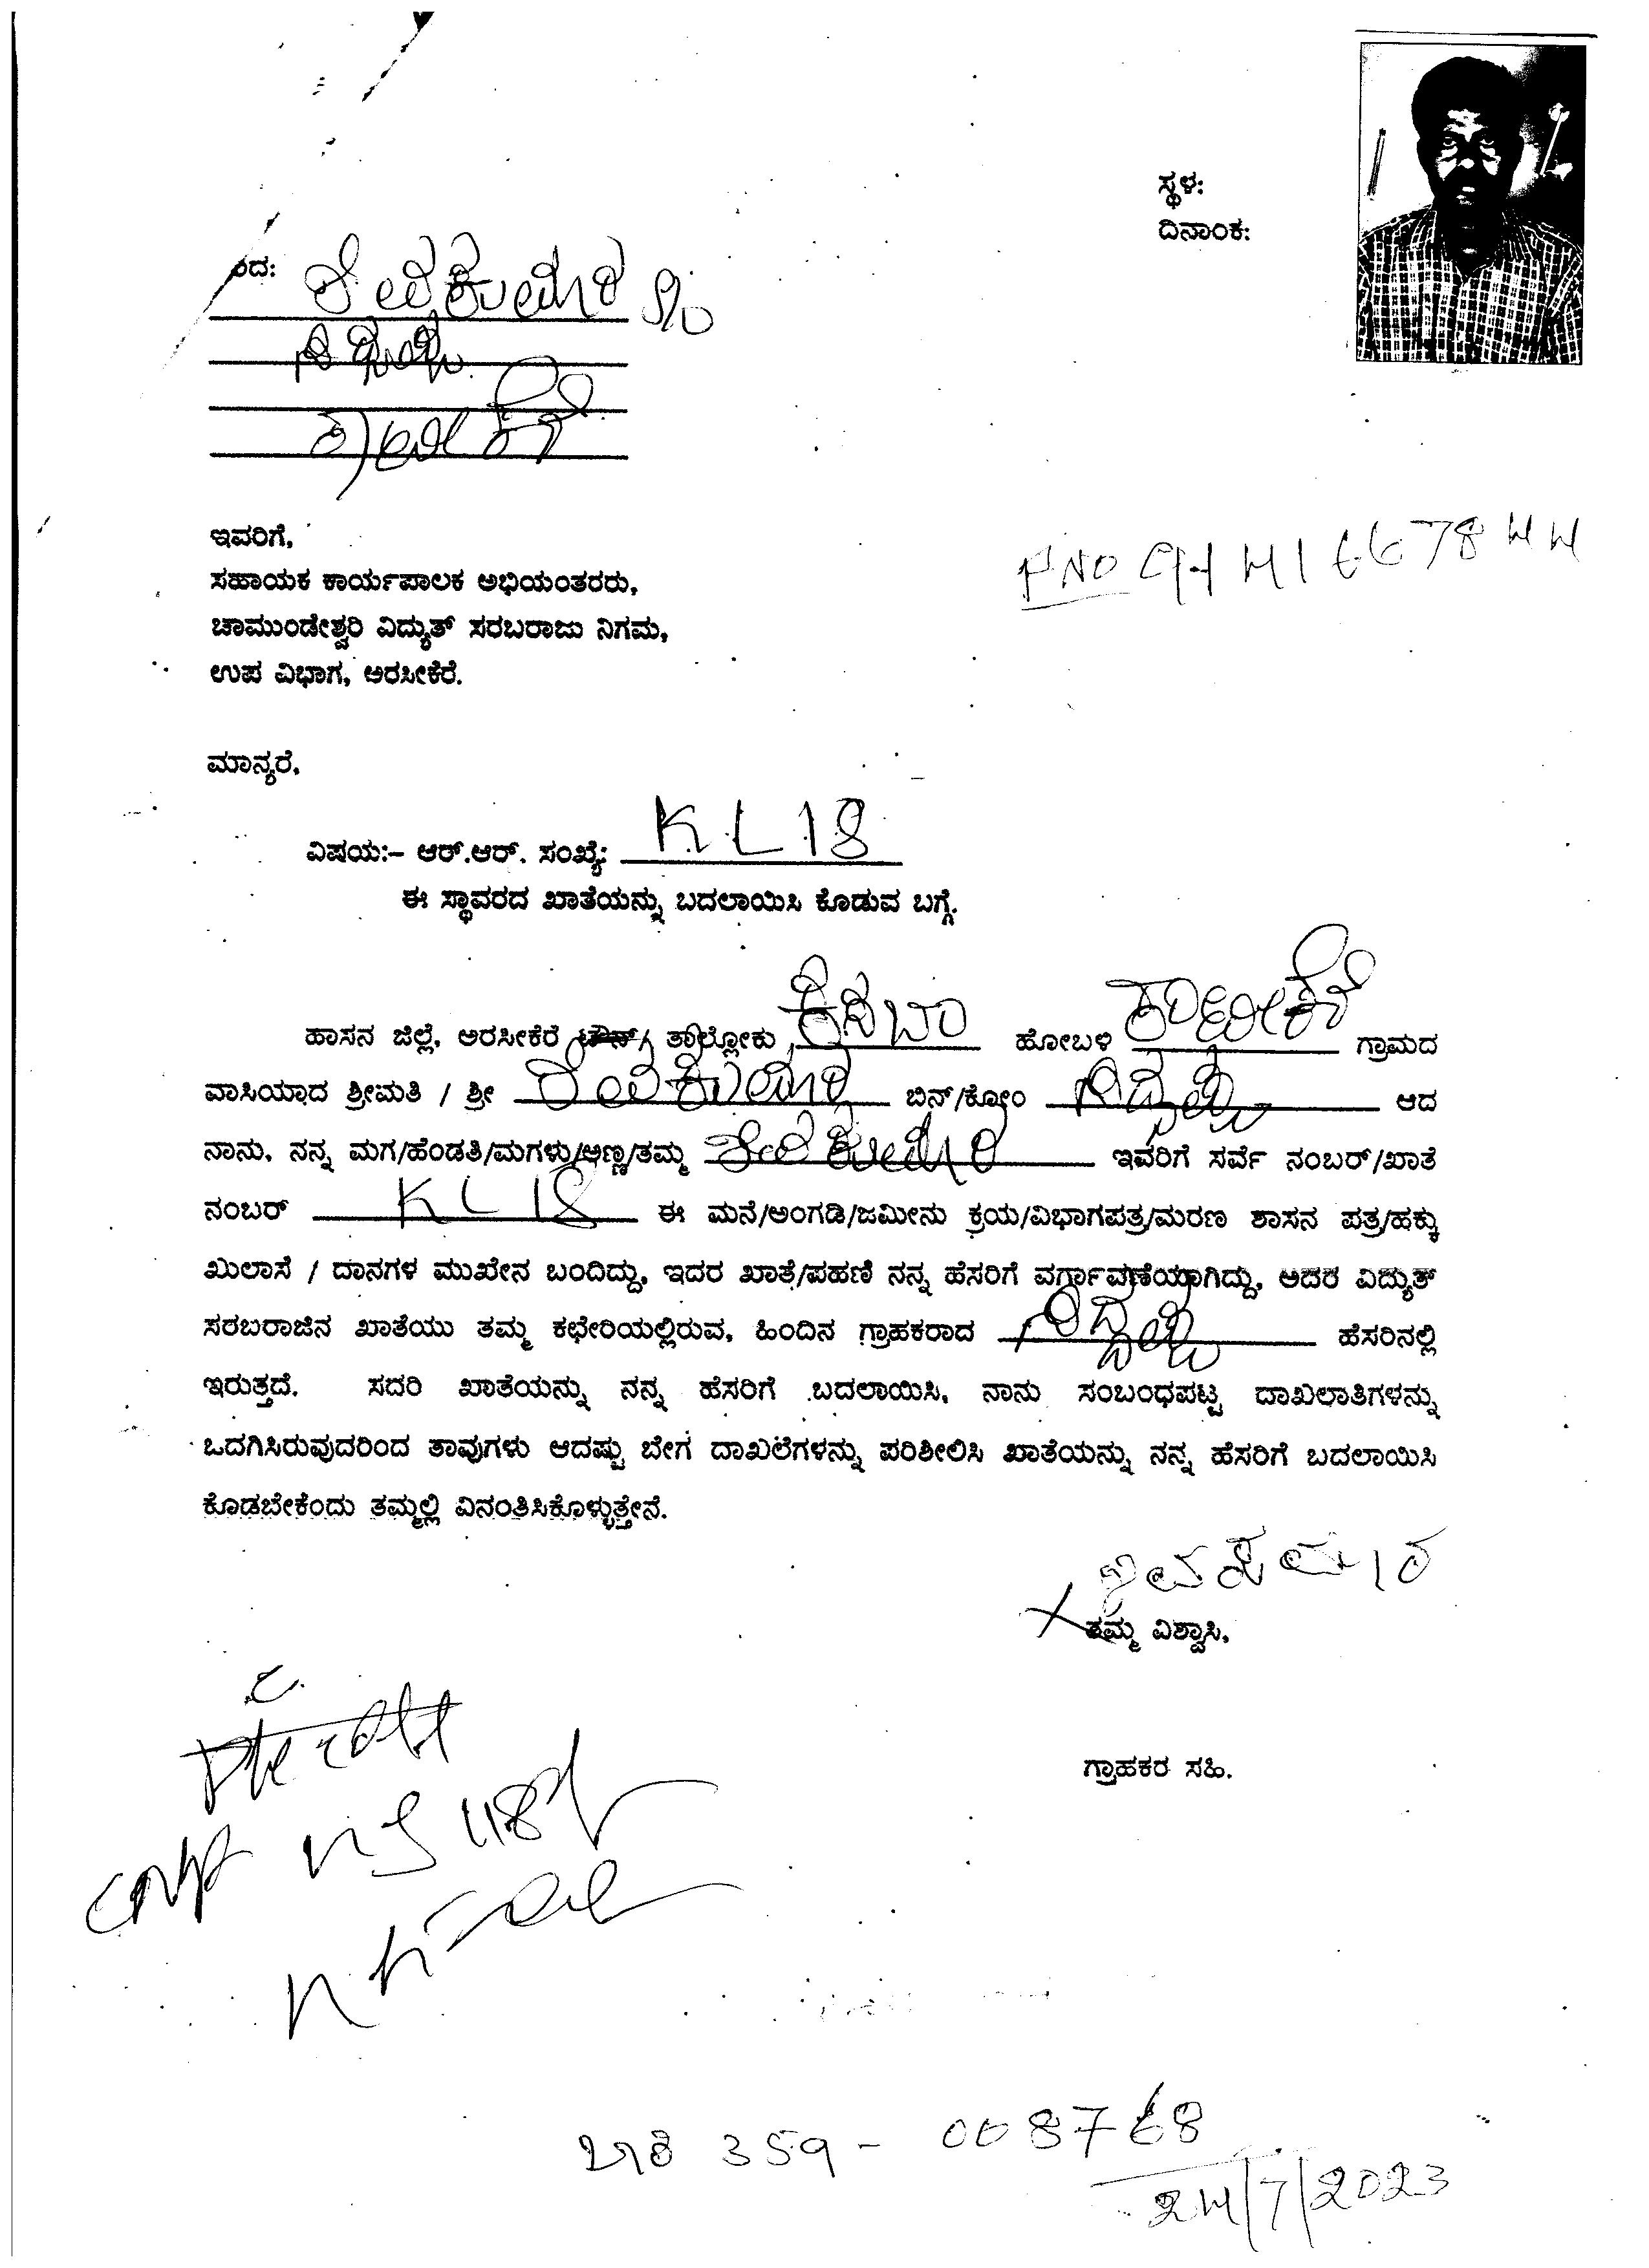 ಸ್ಥಳ:
ದಿನಾಂಕ:
ಂದ: ಶಿವಕುಮಾರ S/o
ಸಿದ್ದಯ್ಯ
ಇವರಿಗೆ,
ಸಹಾಯಕ ಕಾರ್ಯಪಾಲಕ ಅಭಿಯಂತರರು,
ಚಾಮುಂಡೇಶ್ವರಿ ವಿದ್ಯುತ್ ಸರಬರಾಜು ನಿಗಮ,
ಉಪ ವಿಭಾಗ, ಅರಸೀಕೆರೆ.
ಮಾನ್ಯರೆ,
ವಿಷಯ:- ಆರ್.ಆರ್. ಸಂಖ್ಯೆ: KL18
ಈ ಸ್ಥಾವರದ ಖಾತೆಯನ್ನು ಬದಲಾಯಿಸಿ ಕೊಡುವ ಬಗ್ಗೆ.
ಹಾಸನ ಜಿಲ್ಲೆ, ಅರಸೀಕೆರೆ ಟೌನ್/ ತಾಲ್ಲೋಕು, ಹೋಬಳಿ ಗ್ರಾಮದ
ವಾಸಿಯಾದ ಶ್ರೀಮತಿ / ಶ್ರೀ ಶಿವಕುಮಾರ ಬಿನ್/ಕೋಂ ಸಿದ್ದಯ್ಯ ಆದ
ನಾನು, ನನ್ನ ಮಗ/ಹೆಂಡತಿ/ಮಗಳು/ಅಣ್ಣ/ತಮ್ಮ ಶಿವಕುಮಾರ ಇವರಿಗೆ ಸರ್ವೆ ನಂಬರ್/ಖಾತೆ
ನಂಬರ್ KL18 ಈ ಮನೆ/ಅಂಗಡಿ/ಜಮೀನು ಕ್ರಯ/ವಿಭಾಗಪತ್ರ/ಮರಣ ಶಾಸನ ಪತ್ರ/ಹಕ್ಕು
ಖುಲಾಸೆ / ದಾನಗಳ ಮುಖೇನ ಬಂದಿದ್ದು, ಇದರ ಖಾತೆ/ಪಹಣಿ ನನ್ನ ಹೆಸರಿಗೆ ವರ್ಗಾವಣೆಯಾಗಿದ್ದು, ಅದರ ವಿದ್ಯುತ್
ಸರಬರಾಜಿನ ಖಾತೆಯು ತಮ್ಮ ಕಛೇರಿಯಲ್ಲಿರುವ, ಹಿಂದಿನ ಗ್ರಾಹಕರಾದ ಸಿದ್ದಯ್ಯ ಹೆಸರಿನಲ್ಲಿ
ಇರುತ್ತದೆ. ಸದರಿ ಖಾತೆಯನ್ನು ನನ್ನ ಹೆಸರಿಗೆ ಬದಲಾಯಿಸಿ, ನಾನು ಸಂಬಂಧಪಟ್ಟ ದಾಖಲಾತಿಗಳನ್ನು
ಒದಗಿಸಿರುವುದರಿಂದ ತಾವುಗಳು ಆದಷ್ಟು ಬೇಗ ದಾಖಲೆಗಳನ್ನು ಪರಿಶೀಲಿಸಿ ಖಾತೆಯನ್ನು ನನ್ನ ಹೆಸರಿಗೆ ಬದಲಾಯಿಸಿ
ಕೊಡಬೇಕೆಂದು ತಮ್ಮಲ್ಲಿ ವಿನಂತಿಸಿಕೊಳ್ಳುತ್ತೇನೆ.
ಶಿವಕುಮಾರ
ತಮ್ಮ ವಿಶ್ವಾಸಿ,
ಗ್ರಾಹಕರ ಸಹಿ.
359 - 008768
24/7/2023